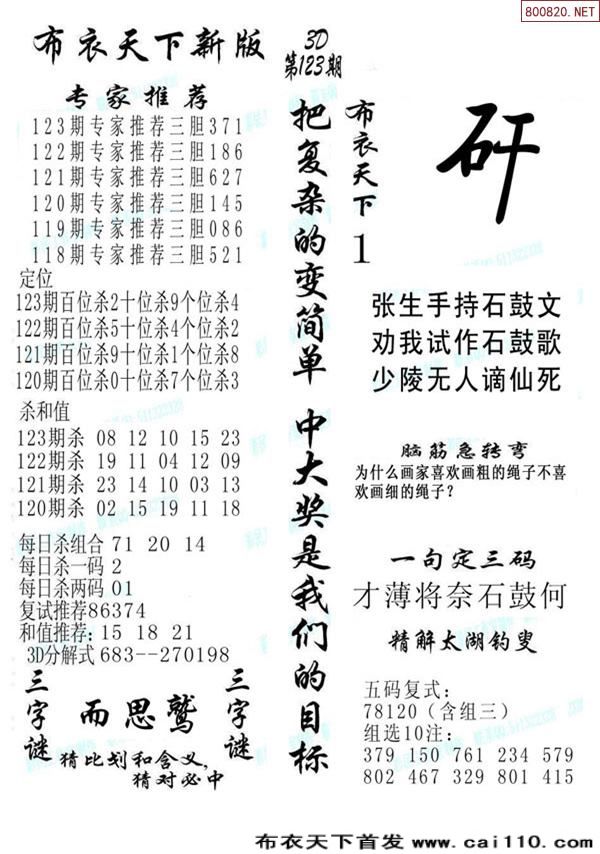 800820.NET
布衣天下新版
3D
第123期
专家推荐
123期专家推荐三胆371
122期专家推荐三胆186
121期专家推荐三胆627
120期专家推荐三胆145
119期专家推荐三胆086
118期专家推荐三胆521
定位
123期百位杀2十位杀9个位杀4
122期百位杀5十位杀4个位杀2
121期百位杀9十位杀1个位杀8
120期百位杀0十位杀7个位杀3
杀和值
123期杀 08 12 10 15 23
122期杀 19 11 04 12 09
121期杀 23 14 10 03 13
120期杀 02 15 19 11 18
每日杀组合 71 20 14
每日杀一码 2
每日杀两码 01
复试推荐86374
和值推荐: 15 18 21
3D分解式 683--270198
三字谜
而思鹫
三字谜
猜比划和含义,
猜对必中
把复杂的变简单 中大奖是我们的目标
布衣天下
1
矸
张生手持石鼓文
劝我试作石鼓歌
少陵无人谪仙死
脑筋急转弯
为什么画家喜欢画粗的绳子不喜
欢画细的绳子？
一句定三码
才薄将奈石鼓何
精解太湖钓叟
五码复式:
78120（含组三）
组选10注:
379 150 761 234 579
802 467 329 801 415
布衣天下首发 www.cai110.com